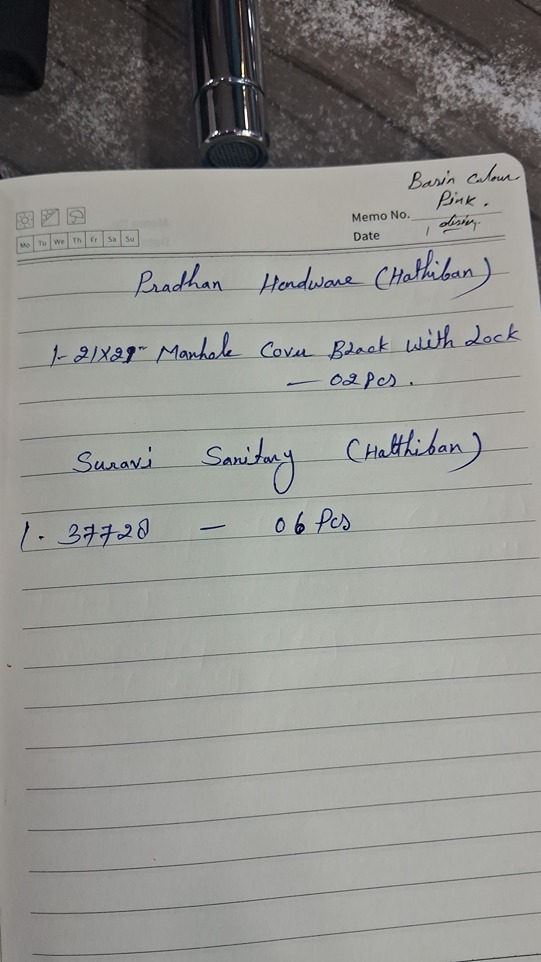 Basin Colour
Pink.
Memo No.
Date
1 desing
Mo Tu We Th Fr Sa Su
Pradhan Hendware (Hathiban)
1- 21X21" Manhole Cover Black with Lock
— 02 Pcs.
Suravi Sanitary (Hatthiban)
1. 37728 — 06 Pcs